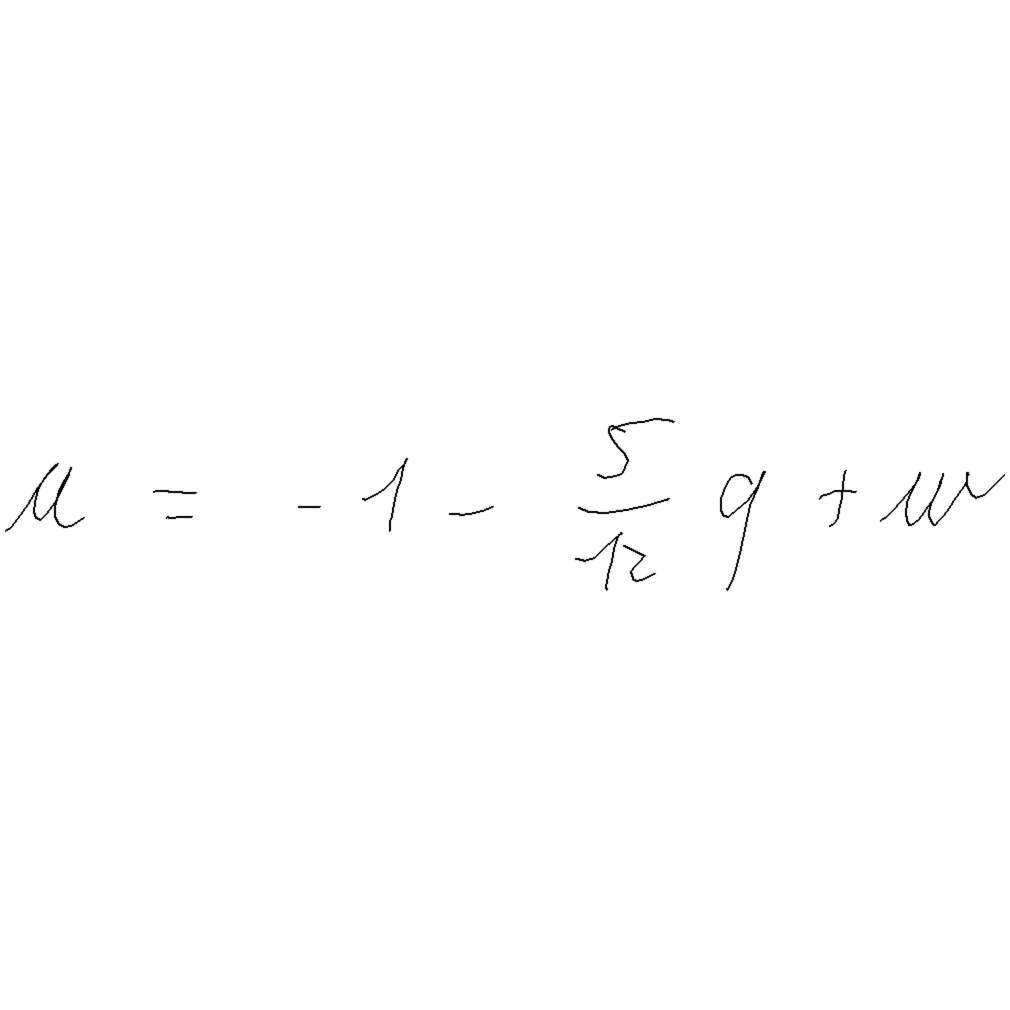 u = - 1 - \frac{5}{12} q + w